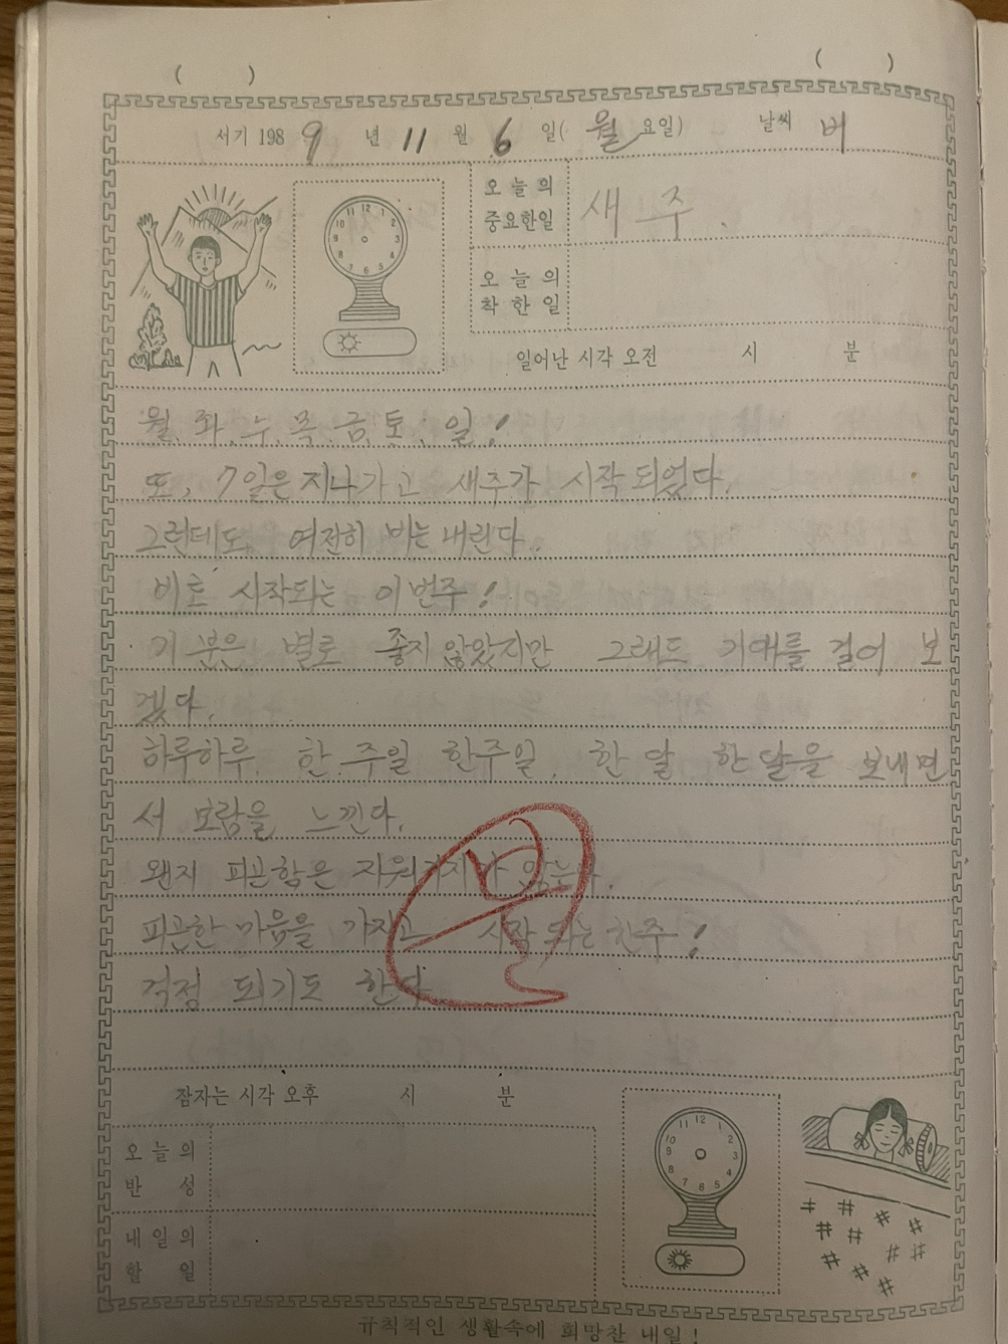 ( ) ( )
서기 198 9 년 11 월 6 일( 월 요일) 날씨 비
오늘의 중요한일 새 주.
오늘의 착한일
일어난 시각 오전 시 분
월. 화. 수. 목. 금. 토. 일!
또, 7일은 지나가고 새주가 시작 되었다.
그런데도 여전히 비는 내린다.
비로 시작되는 이번주!
기분은 별로 좋지 않았지만 그래도 기대를 걸어 보
겠다.
하루하루. 한 주일 한주일. 한 달 한 달을 보내면
서 보람을 느낀다.
왠지 피곤함은 지워지지가 않는다.
피곤한 마음을 가지고 시작 되는 한주!
걱정 되기도 한다
잠자는 시각 오후 시 분
오늘의 반성
내일의 할일
규칙적인 생활속에 희망찬 내일!
12 1 2 3 4 5 6 7 8 9 10 11
12 1 2 3 4 5 6 7 8 9 10 11